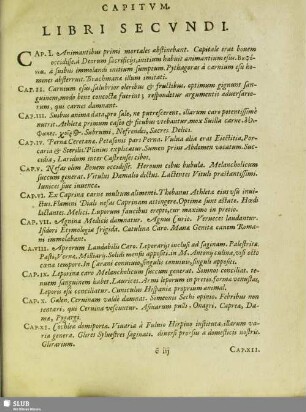 CAPITVM.
LIBRI SECVNDI.
CAP. I. Animantibus primi mortales abstinebant. Capitale erat bouem
occidisse. à Deorum sacrificijs, antiani habiti animantium esus.
à suibus immolandi initium sumptum. Pythagoras à carnium esu ho-
mines absterruit. Brachmanas illum imitati.
CAP. II. Carnium esus salubrior oleribus & fructibus. optimum gignunt san-
guinem, modo bene concocta fuerint, respondetur argumentis aduersario-
rum, qui carnes damnant.
CAP. III. Suibus anima data, pro sale, ne putrescerent, illarum caro potentissimè
nutrit. Athleta primum casto & suribus vtebantur, mox Suilla carne.
Subrumi, Nefrendes, Sacres. Delici.
CAP. IV. Perna Cerretana. Petasones pars Perna. Vulua alia erat Eiectitia, Por-
caria & Sterilis. Plinius explicatur. Sumen primo ab vltimo partu. Suc-
cidia, Lardum inter Castrenses cibos.
CAP. V. Nefas olim Bouem occidisse. Heroum cibus bubula. Melancholicum
succum generat. Vitulus Domalia dictus. Lactentes Vituli praestantissimi.
Iunices siue inuentes.
CAP. VI. Ex Caprina carne multum alimenti. Thebanus Athleta eius esu inuic-
tus. Flamini Diali nefas Caprinam attingere. Optima sunt aestate. Hoedi
lactantes. Melici. Leporum fauciles excepti, cur maximo in pretio.
CAP. VII. Agnina Medicis damnatur. Agnus Curio. Veruecis laudantur.
Isidori Etymologia frigida. Catulina Caro. Mana Genita canem Roma-
ni immolabant.
CA. VIII. Aprorum Laudabilis Caro. Leporarijs inclusi ad saginam. Palestrita.
Pasti, Verna, Medicari, Solidi mensis appositi. in M. Antonij cultina, vsti octo
cœna tempore. In Carani conuiuio singulis conuiuis, singuli appositi.
CAP. IX. Leporina caro Melancholicum succum generat. Somnos conciliat. te-
nuem sanguinem habet. Laurices. Armi leporum in pretio. forma venustas,
Leporis esu conciliatur. Cuniculus Hispaniae proprium animal.
CAP. X. Galen. Ceruinam valde damnat. Simeonis Sethi opinio. Febribus non
tentari, qui Ceruina vescuntur. Asinarum pulli, Onagri, Caprea, Da-
ma, Pygargi.
CAP. XI. Cochlea deniperta. Viuaria à Fuluio Hirpino instituta, illarum va-
ria genera. Glires Syluestres saginati. diuersi prorsus à domesticis nostris.
Glirarium.
é iij
CAP. XII.
SLUB